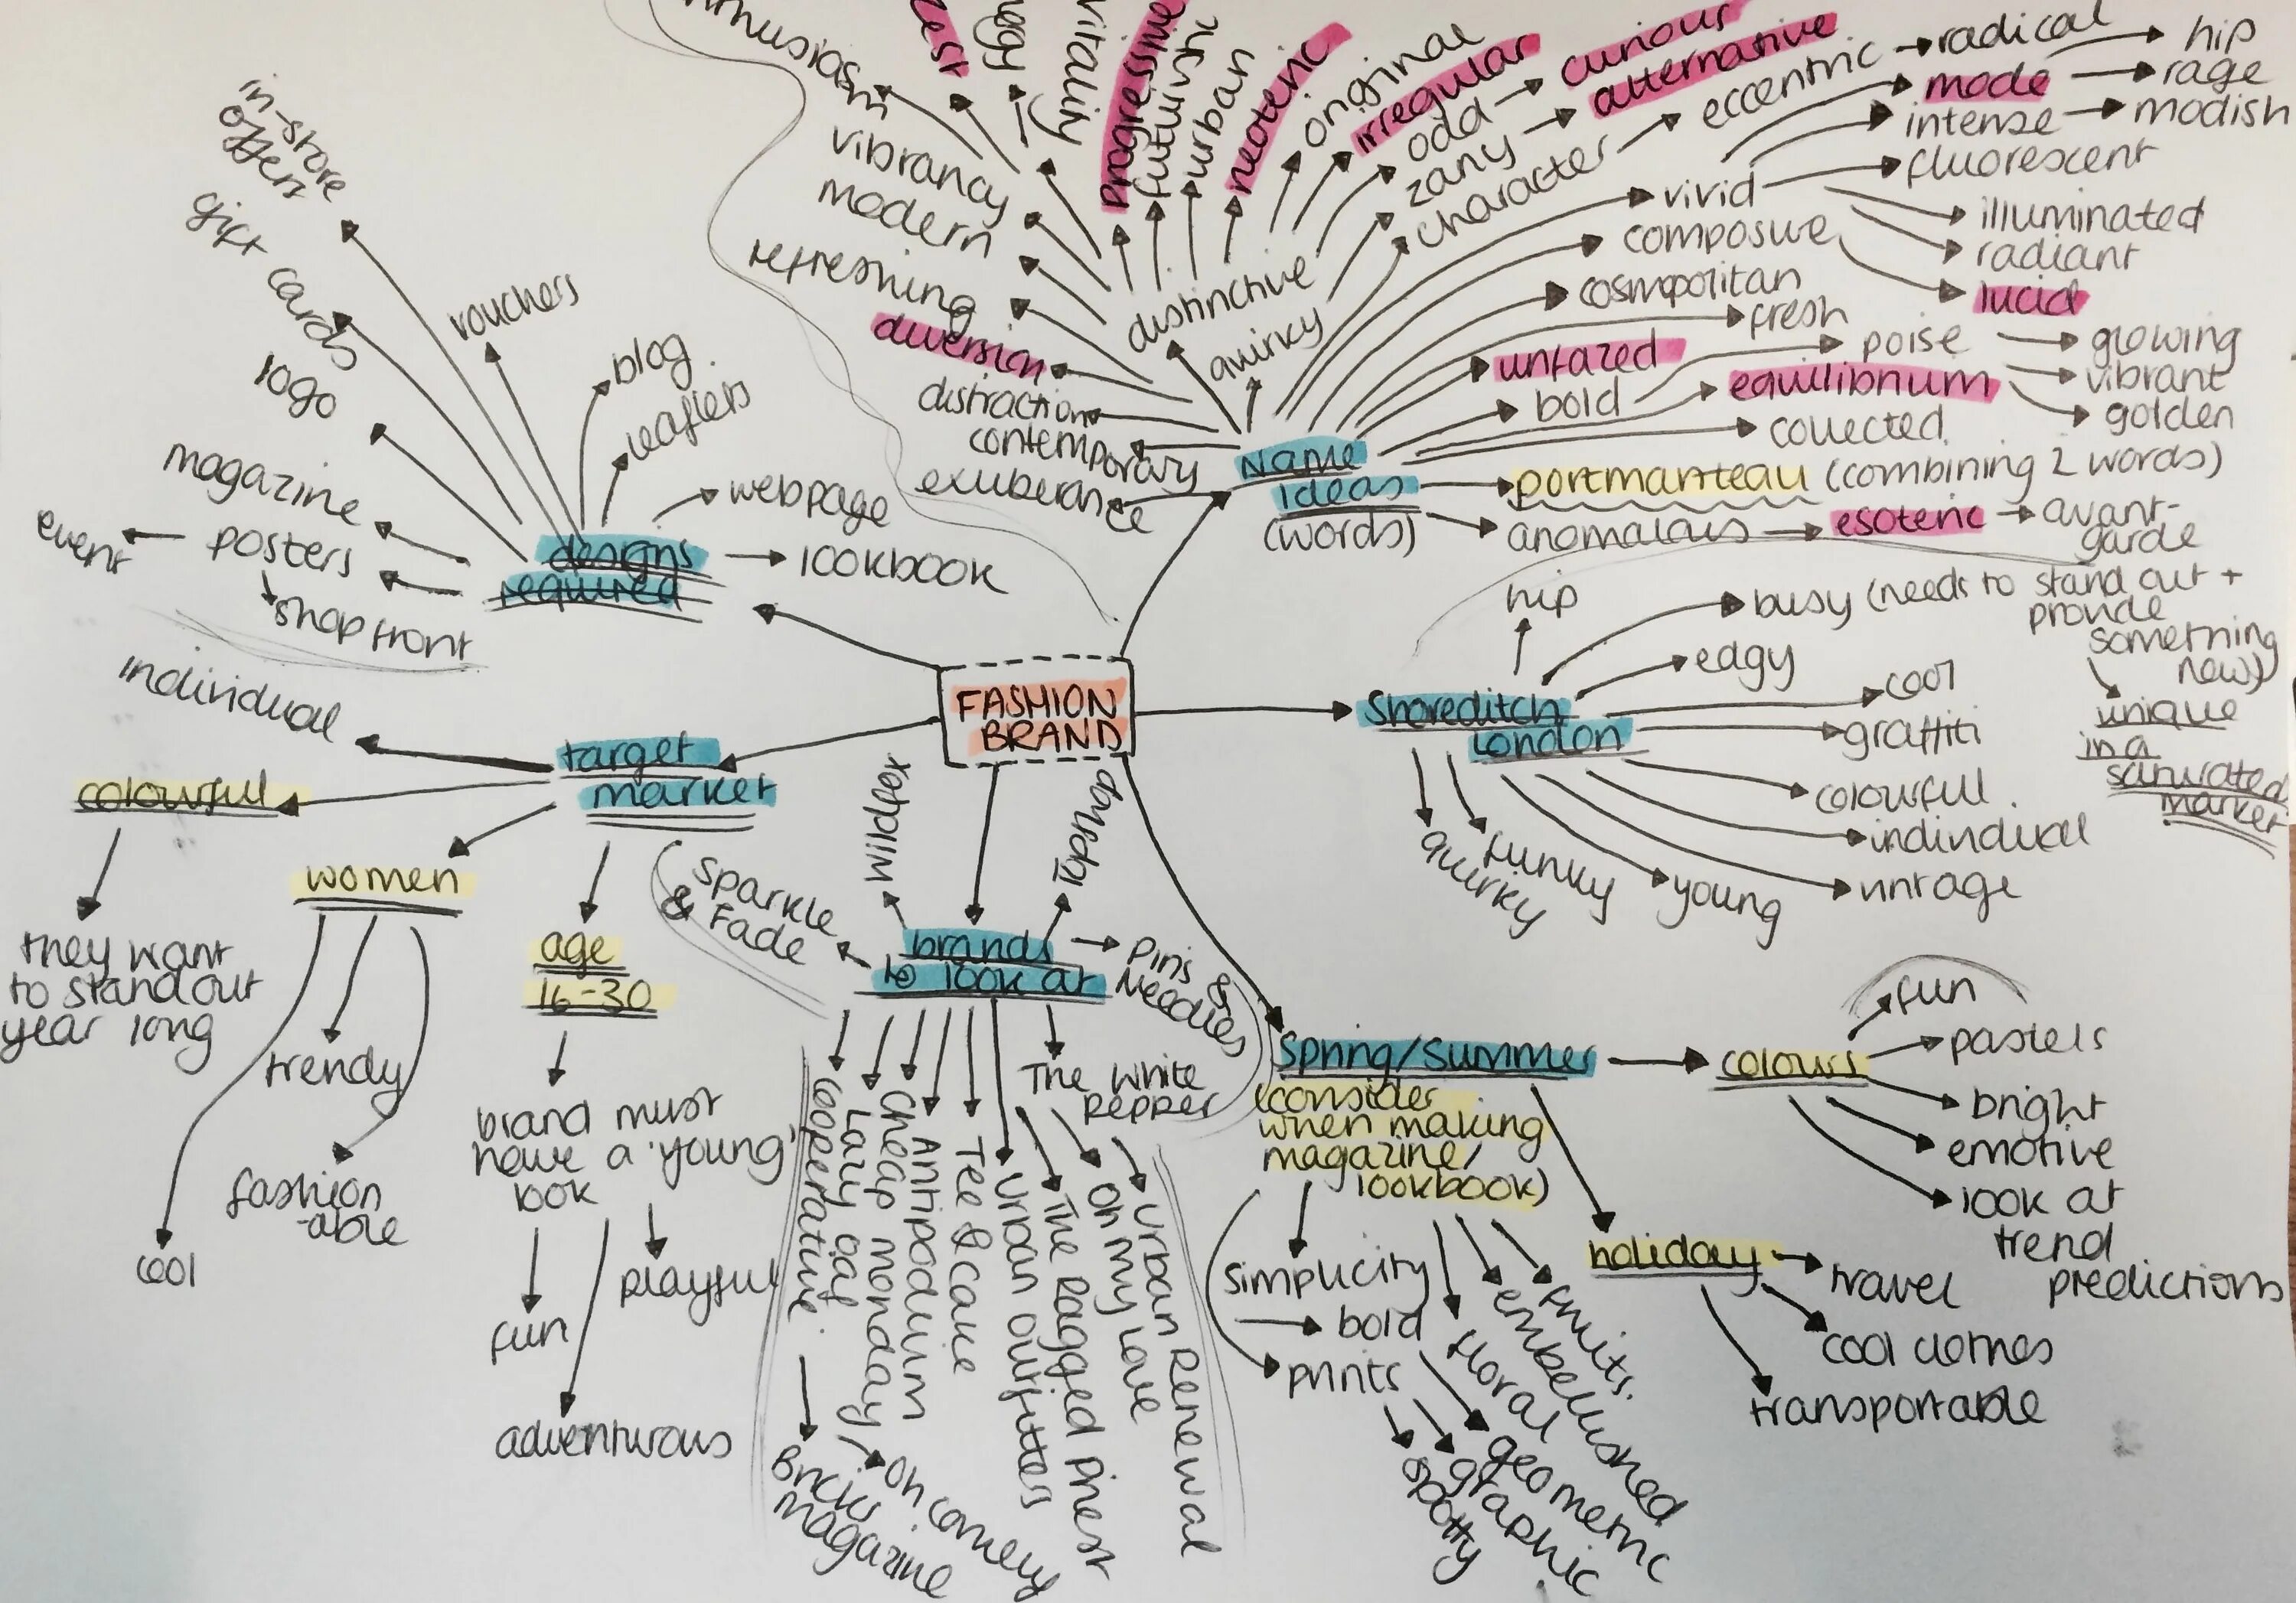 FASHION
BRAND
Name
ideas
(words)
vibrancy
modern
refreshing
diversion
distraction
contemporary
exuberance
zest
vitality
progressive
futuristic
urban
neoteric
original
irregular
odd
curious
zany
alternative
character
eccentric
radical
hip
mode
rage
intense
modish
fluorescent
vivid
illuminated
radiant
composure
lucid
cosmopolitan
fresh
distinctive
quirky
unfazed
poise
glowing
vibrant
golden
bold
equilibrium
collected
portmanteau (combining 2 words)
anomalous
esoteric
avant-
garde
Shoreditch
London
hip
busy (needs to stand out +
provide
something
new)
unique
in a
saturated
market
edgy
cool
graffiti
colourful
individual
vintage
young
funky
quirky
Spring/Summer
(consider
when making
magazine/
lookbook)
colours
fun
pastels
bright
emotive
look at
trend
predictions
holiday
travel
cool clothes
transportable
simplicity
bold
prints
fruits
embellished
floral
geometric
graphic
spotty
brands
to look at
Wildfox
Topshop
Pins &
Needles
Sparkle
& Fade
The White
Pepper
Urban Renewal
Oh My Love
The Ragged Priest
Urban Outfitters
Tee & Cake
Antipodium
Cheap monday
Lazy oaf
Cooperative
Bricks
magazine
target
market
individual
colourful
they want
to stand out
year long
women
cool
trendy
fashion
-able
age
16-30
brand must
have a 'young'
look
fun
playful
adventurous
designs
required
in-store
offers
gift cards
vouchers
logo
blog
leaflets
magazine
webpage
posters
event
shop front
lookbook